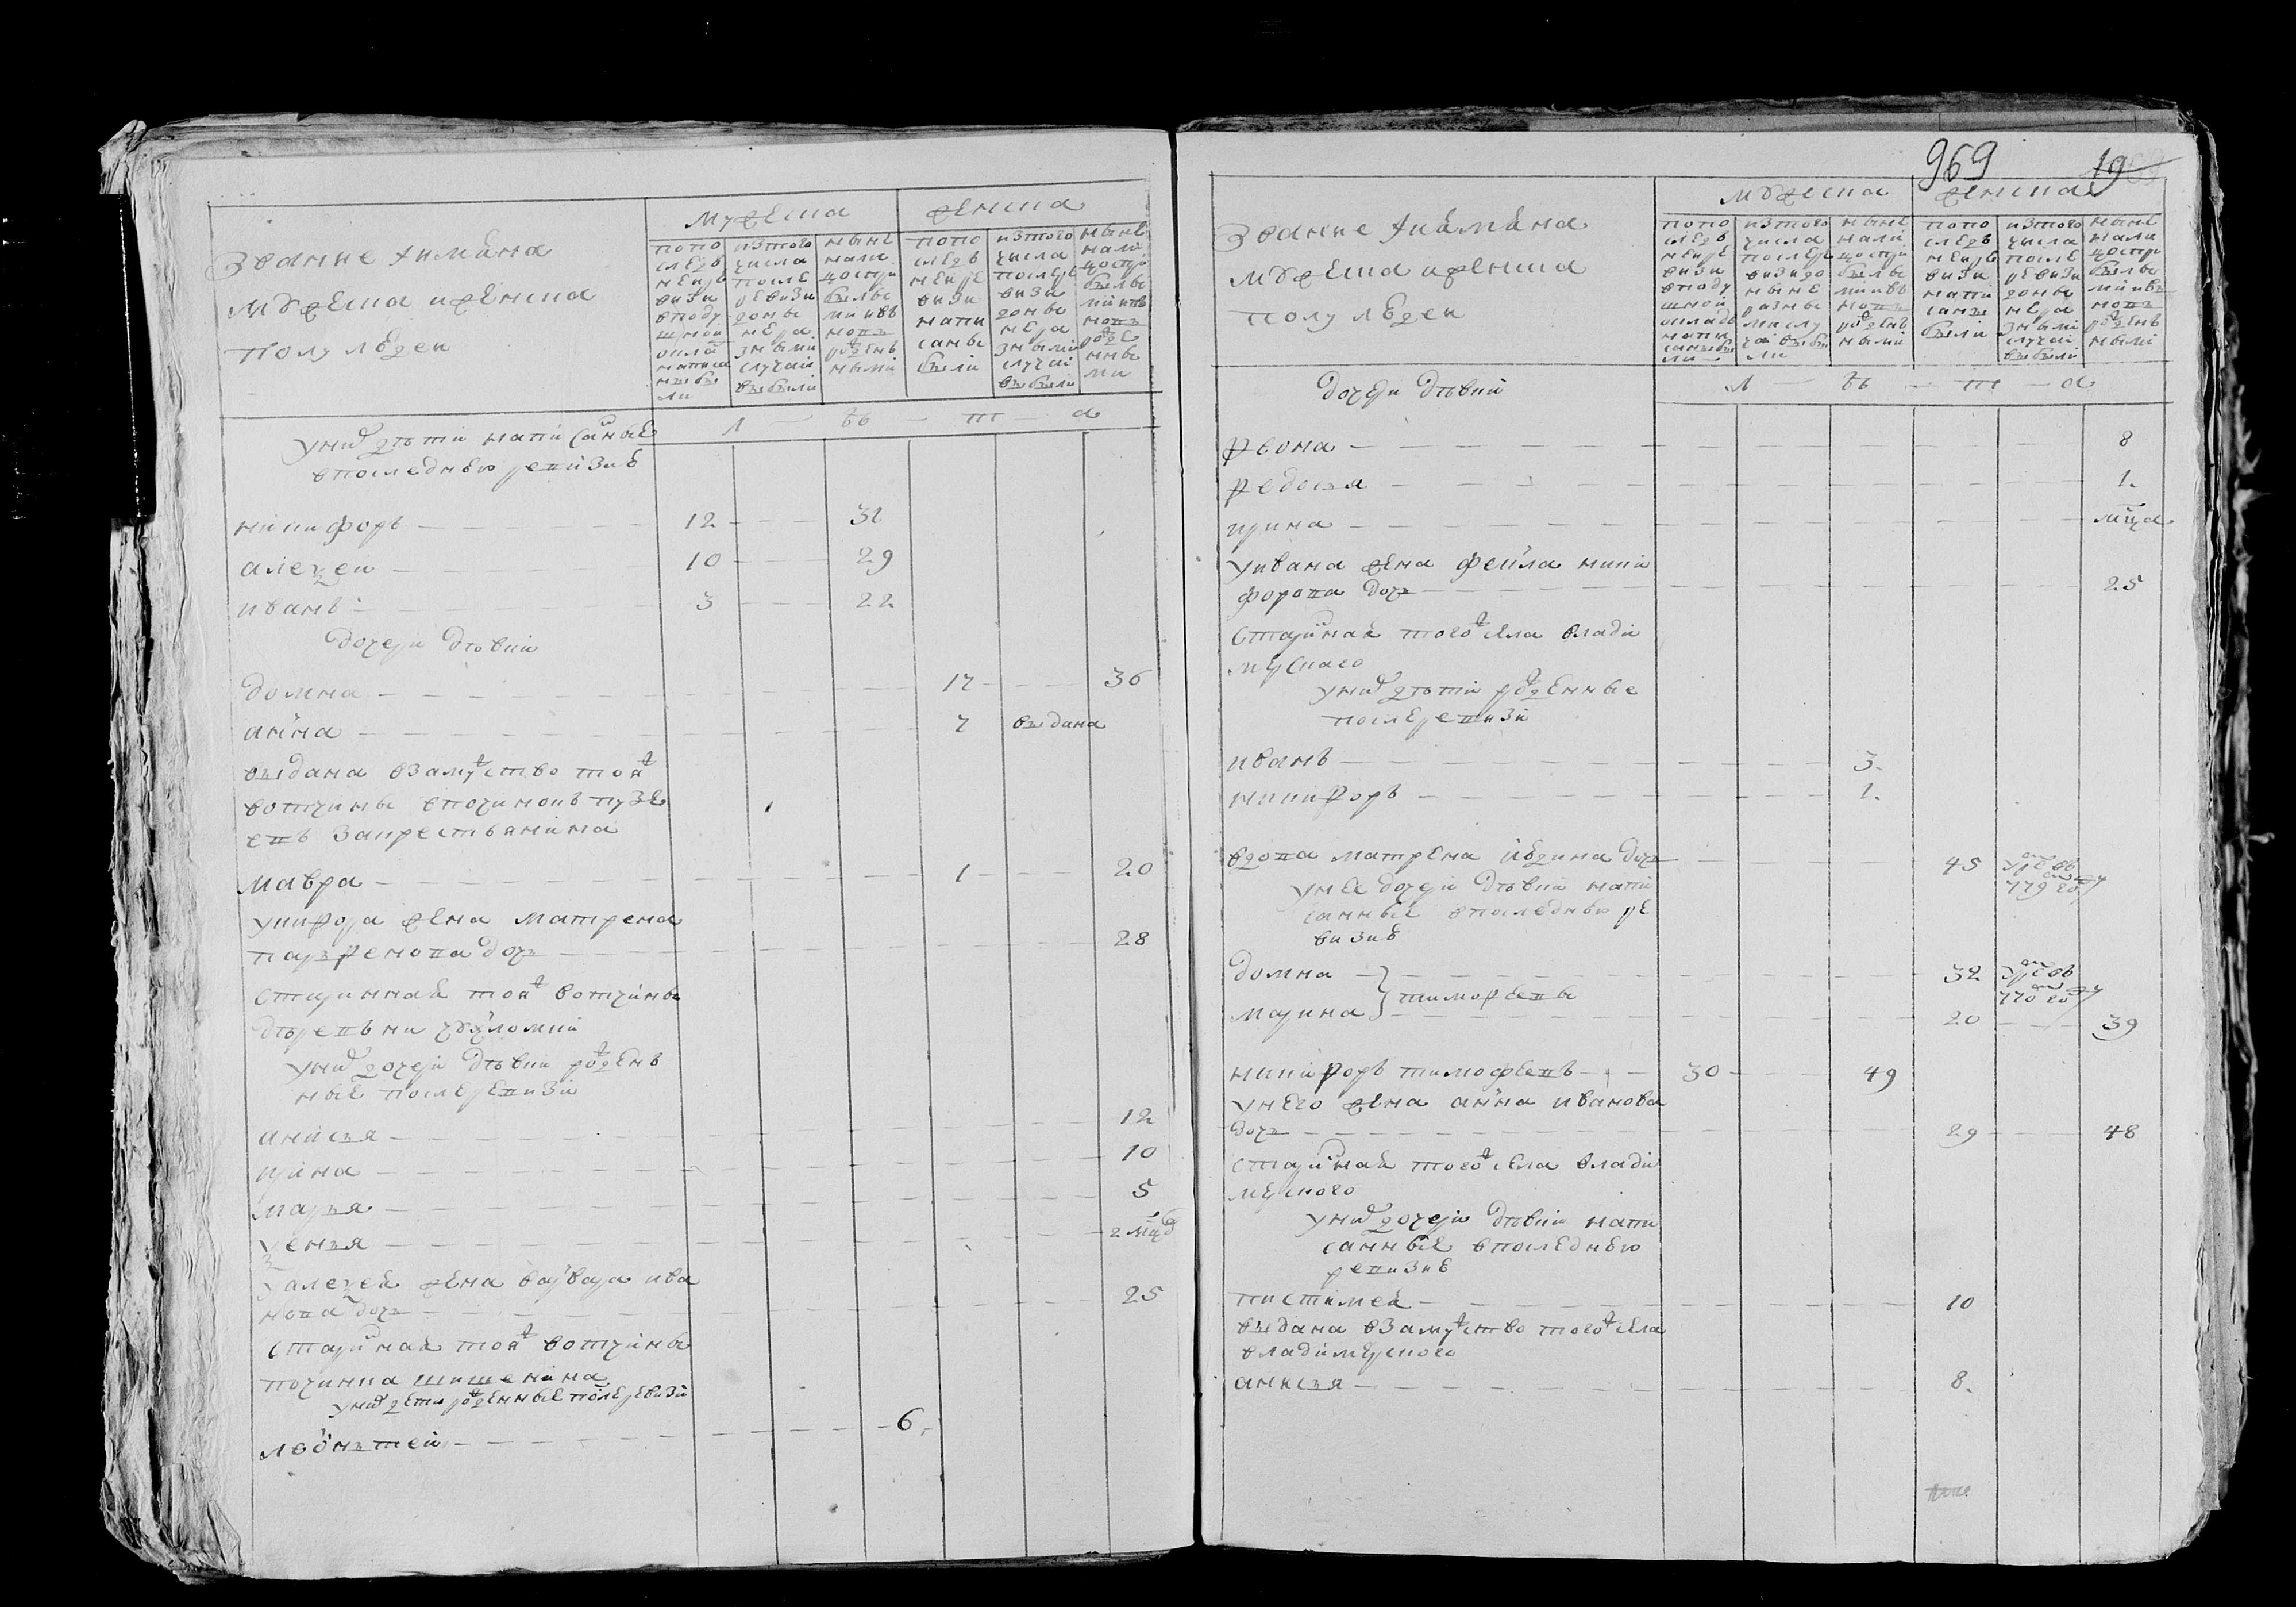 Звание и имена
мужеска и женска
полу людей
мужеска
женска
по по
след
ней ре
визи
в поду
шной
окла
написа
ны бы
ли
из того
числа
после
ревизи
до ны
нера
зными
случаи
выбыли
ныне
нали
цо с при
былы
ми и въ
новь
рожден
ными
по по
след
ней ре
визи
напи
саны
были
из того
числа
после ре
визи
до ны
нера
зными
случаи
выбыли
ныне
нали
цо с при
былы
ми и въ
новь
рожде
нны
ми
у них дети написаные
в последнюю ревизию
л ѣ т а
никифоръ 12 31
алексей 10 29
иванъ 3 22
дочери девки
домна 17 36
анна 7 выдана
выдана взамужство той ж
вотчины в починокъ пузе
въ за крестьянина
мавра 1 20
у никифора жена матрена
парфенова дочь 28
старинная той ж вотчины
деревни
у них дочери девки рожден
ные после ревизи
анисья 12
ирина 10
марья 5
ксенья 2 мцы
у алексея жена варвара ива
нова дочь 25
старинная той ж вотчины
починка шишенина
у них дети рожденные после ревизи
леонтей 6
969
19
Звание и имена
мужеска и женска
полу людей
мужеска
женска
по по
следъ
ней ре
визи
в поду
шной
окладъ
напи
саны бы
ли
из того
числа
после ре
визи до
ныне
разны
ми слу
чаи выбы
ли
ныне
нали
цо с при
былы
ми и въ
новь
рожден
ными
по по
следъ
ней ре
визи
напи
саны
были
из того
числа
после
ревизи
до ны
нера
зными
случаи
выбыли
ныне
нали
цо с при
былы
ми и въ
новь
рожден
ными
дочери девки
л ѣ т а
феона 8
федосья 1
ирина мца
у ивана жена фекла ники
форова дочь 25
старинная того ж села влади
мерскаго
у них дети рожденные
после ревизи
иванъ 3
никифоръ 1
вдова матрена дочь 45
у нее дочери девки напи
санные в последнюю ре
визию
779 году
домна 32
тимофеевы 770 году
марина 20 39
никифоръ тимофеевъ 30 49
у него жена анна иванова
дочь 29 48
старинная того ж села влади
мерского
у них дочери девки напи
санные в последнюю
ревизию
пистимея 10
выдана взамужство того ж села
владимерского
анисья 8